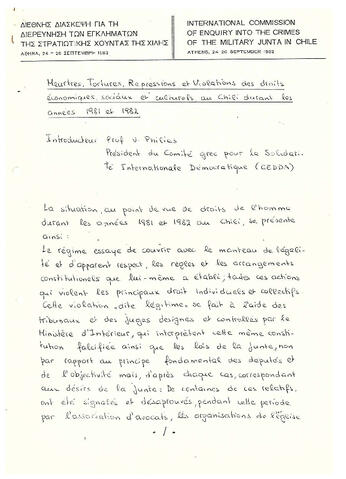 ΔΙΕΘΝΗΣ ΔΙΑΣΚΕΨΗ ΓΙΑ ΤΗ
ΔΙΕΡΕΥΝΗΣΗ ΤΩΝ ΕΓΚΛΗΜΑΤΩΝ
ΤΗΣ ΣΤΡΑΤΙΩΤΙΚΗΣ ΧΟΥΝΤΑΣ ΤΗΣ ΧΙΛΗΣ
ΑΘΗΝΑ, 24 - 26 ΣΕΠΤΕΜΒΡΗ 1982
INTERNATIONAL COMMISSION
OF ENQUIRY INTO THE CRIMES
OF THE MILITARY JUNTA IN CHILE
ATHENS, 24-26 SEPTEMBER 1982
Meurtres, Tortures, Repressions et Violations des droits
économiques, sociaux et culturels au Chili durant les
années 1981 et 1982
Introducteur Prof V. Philias
Président du Comité grec pour la Solidari-
té Internationale Démocratique (GEDDA)
La situation, au point de vue de droits de l'homme
durant les années 1981 et 1982 au Chili, se présente
ainsi:
Le régime essaye de couvrir avec le manteau de légali-
té et d'apparent respect, les règles et les arrangements
constitutionels que lui-même a établi, toutes ces actions
qui violent les principaux droit individuels et collectifs
Cette violation, dite légitime, se fait à l'aide des
tribunaux et des juges designés et controllés par le
Ministère d'Intérieur, qui interprètent cette même consti-
tution falcifiée ainsi que les lois de la junte, non
par rapport au principe fondamental des députés et
de l'objectivité mais, d'après chaque cas, correspondant
aux désirs de la junte: De centaines de ces relatifs
ont été signatés et désaprouvés, pendant cette periode
par l'association d'avocats, les organisations de l'église
- / -